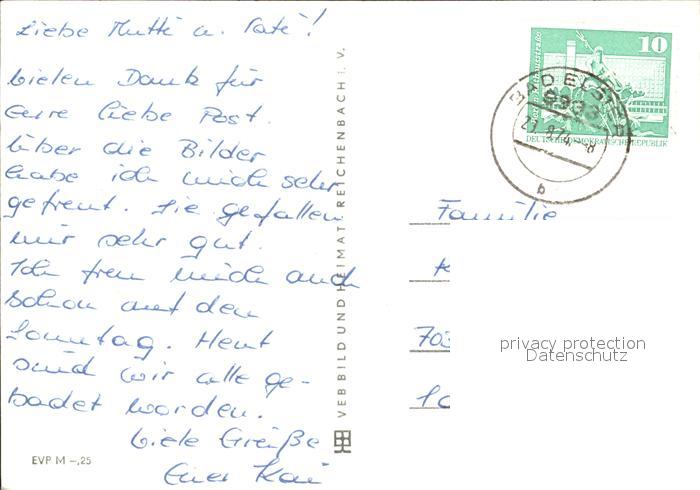 Liebe Mutti u. Vati!
vielen Dank für
eure liebe Post.
Über die Bilder
habe ich mich sehr
gefreut. Sie gefallen
mir sehr gut.
Ich freu mich auch
schon auf den
Sonntag. Heut
sind wir alle ge-
badet worden.
Viele Grüße
Euer Kai
EVP M -,25
VEB BILD UND HEIMAT REICHENBACH i. V.
10
DEUTSCHE DEMOKRATISCHE REPUBLIK
BAD ELSTER
9933
b
Familie
K
703
privacy protection
Datenschutz